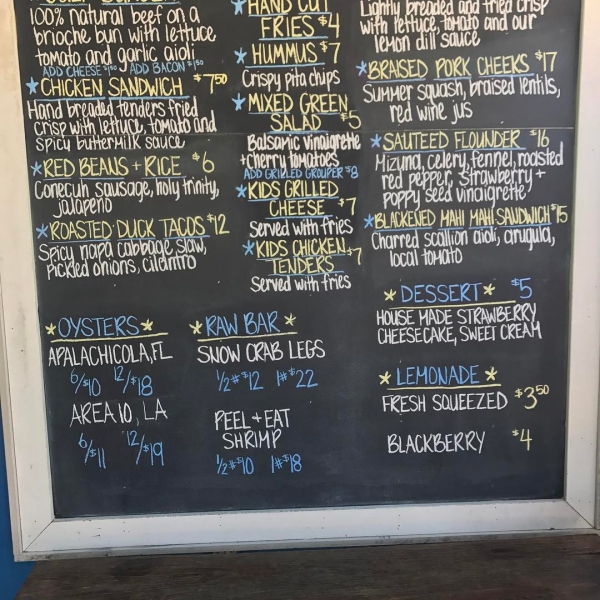 100% natural beef on a
brioche bun with lettuce
tomato and garlic aioli
ADD CHEESE $1.50 ADD BACON $1.50
* CHICKEN SANDWICH $7.50
Hand breaded tenders fried
crisp with lettuce, tomato and
spicy buttermilk sauce
* RED BEANS + RICE $6
Conecuh sausage, holy trinity,
jalapeño
* ROASTED DUCK TACOS $12
Spicy napa cabbage slaw,
pickled onions, cilantro
* HAND CUT
FRIES $4
* HUMMUS $7
Crispy pita chips
* MIXED GREEN
SALAD $5
Balsamic vinaigrette
+ cherry tomatoes
ADD GRILLED GROUPER $8
* KIDS GRILLED
CHEESE $7
Served with fries
* KIDS CHICKEN $7
TENDERS
Served with fries
Lightly breaded and fried crisp
with lettuce, tomato and our
lemon dill sauce
* BRAISED PORK CHEEKS $17
Summer squash, braised lentils,
red wine jus
* SAUTEED FLOUNDER $16
Mizuna, celery, fennel, roasted
red pepper, strawberry +
poppy seed vinaigrette
* BLACKENED MAHI MAHI SANDWICH $15
Charred scallion aioli, arugula,
local tomato
* OYSTERS *
APALACHICOLA, FL
6/$10 12/$18
AREA 10, LA
6/$11 12/$19
* RAW BAR *
SNOW CRAB LEGS
1/2# $12 1# $22
PEEL + EAT
SHRIMP
1/2# $10 1# $18
* DESSERT * $5
HOUSE MADE STRAWBERRY
CHEESECAKE, SWEET CREAM
* LEMONADE *
FRESH SQUEEZED $3.50
BLACKBERRY $4